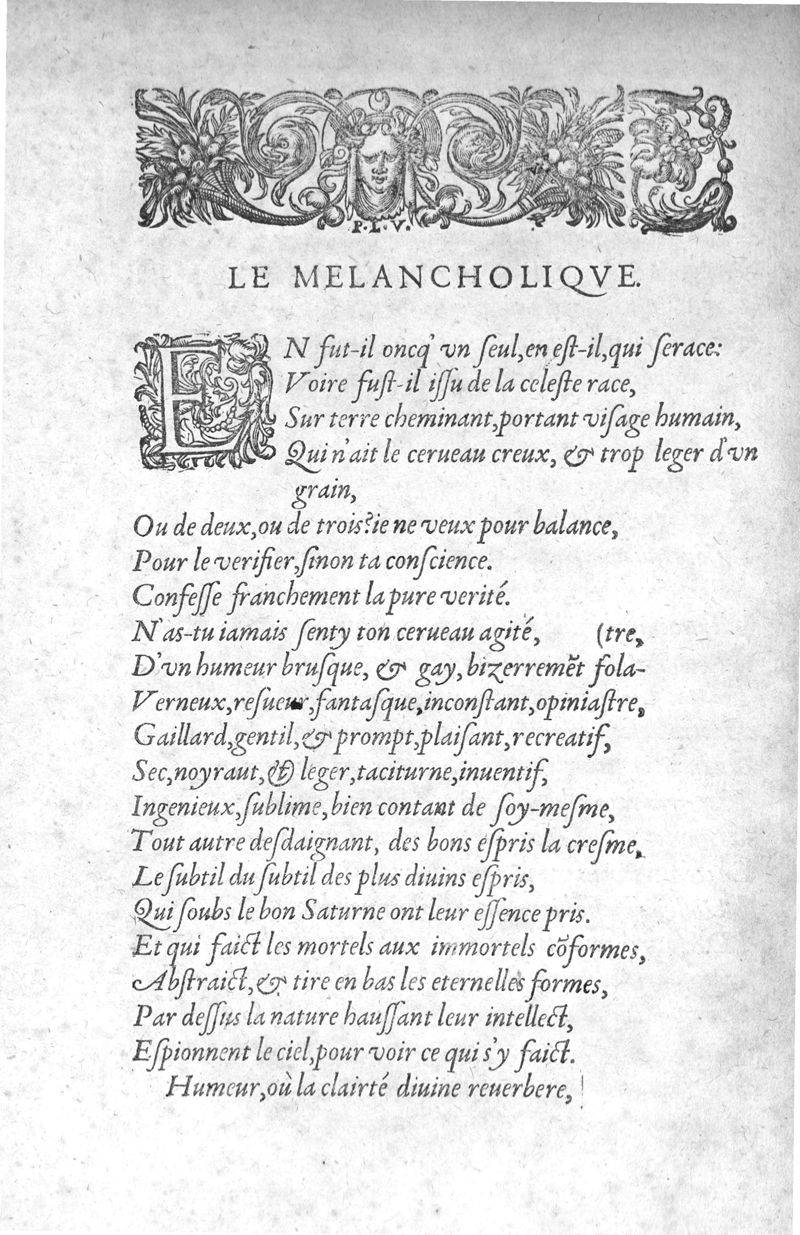 P.L.V.
LE MELANCHOLIQVE.
EN fut-il oncq' vn ſeul,en eſt-il,qui ſerace:
Voire fuſt-il iſſu de la celeſte race,
Sur terre cheminant,portant viſage humain,
Qui n'ait le cerueau creux, & trop leger d'vn
grain,
Ou de deux,ou de trois?ie ne veux pour balance,
Pour le verifier,ſinon ta conſcience.
Confeſſe franchement la pure verité.
N'as-tu iamais ſenty ton cerueau agité, (tre,
D'vn humeur bruſque, & gay, bizerremẽt fola-
Verneux,reſueur,fantaſque,inconſtant,opiniaſtre,
Gaillard,gentil,& prompt,plaiſant,recreatif,
Sec,noyraut,& leger,taciturne,inuentif,
Ingenieux,ſublime,bien contant de ſoy-meſme,
Tout autre deſdaignant, des bons eſpris la creſme,
Le ſubtil du ſubtil des plus diuins eſpris,
Qui ſoubs le bon Saturne ont leur eſſence pris.
Et qui faict les mortels aux immortels cõformes,
Abſtraict,& tire en bas les eternelles formes,
Par deſſus la nature hauſſant leur intellect,
Eſpionnent le ciel,pour voir ce qui s'y faict.
Humeur,où la clairté diuine reuerbere,